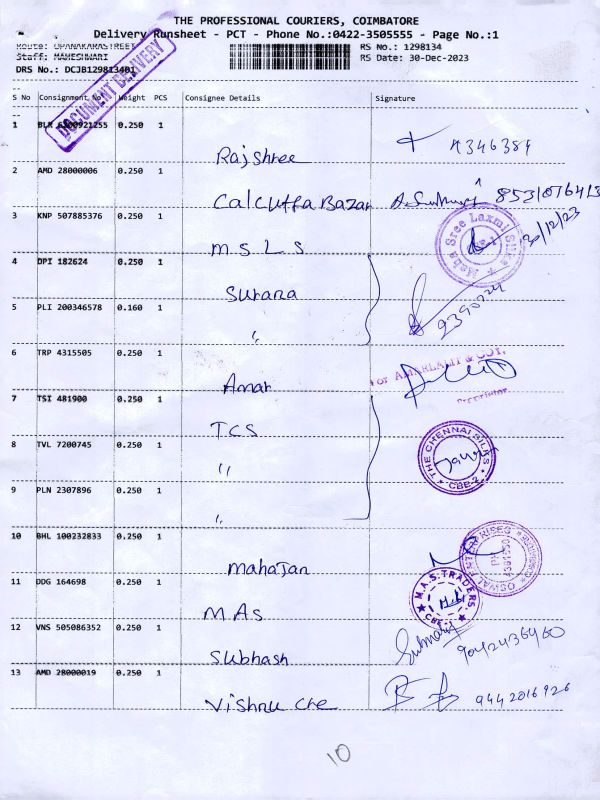 THE PROFESSIONAL COURIERS, COIMBATORE
Delivery Runsheet - PCT - Phone No.:0422-3505555 - Page No.:1
Route: OPANAKARASTREET
RS No.: 1298134
Staff: MAHESHWARI
RS Date: 30-Dec-2023
DRS No.: DCJB129813401
DOCUMENT DELIVERY
S No Consignment No Weight PCS Consignee Details Signature
1 BLR 6200921255 0.250 1 Rajshree
2 AMD 28000006 0.250 1 Calcutta Bazar 8531076413
3 KNP 507885376 0.250 1 M S L S 30/12/23
Maha Sree Laxmi Silks
4 DPI 182624 0.250 1 Surana
5 PLI 200346578 0.160 1 "
6 TRP 4315505 0.250 1 Amar
For AMARLALIT & COY.
Proprietor
7 TSI 481900 0.250 1 TCS
8 TVL 7200745 0.250 1 "
THE CHENNAI SILKS
CBE-2
9 PLN 2307896 0.250 1 "
10 BHL 100232833 0.250 1 Mahajan
OSWAL ENTERPRISES
11 DDG 164698 0.250 1 MAS
M.A.S. TRADERS
CBE-1
12 VNS 505086352 0.250 1 Subhash 9042436460
13 AMD 28000019 0.250 1 Vishnu Che 9442016926
10